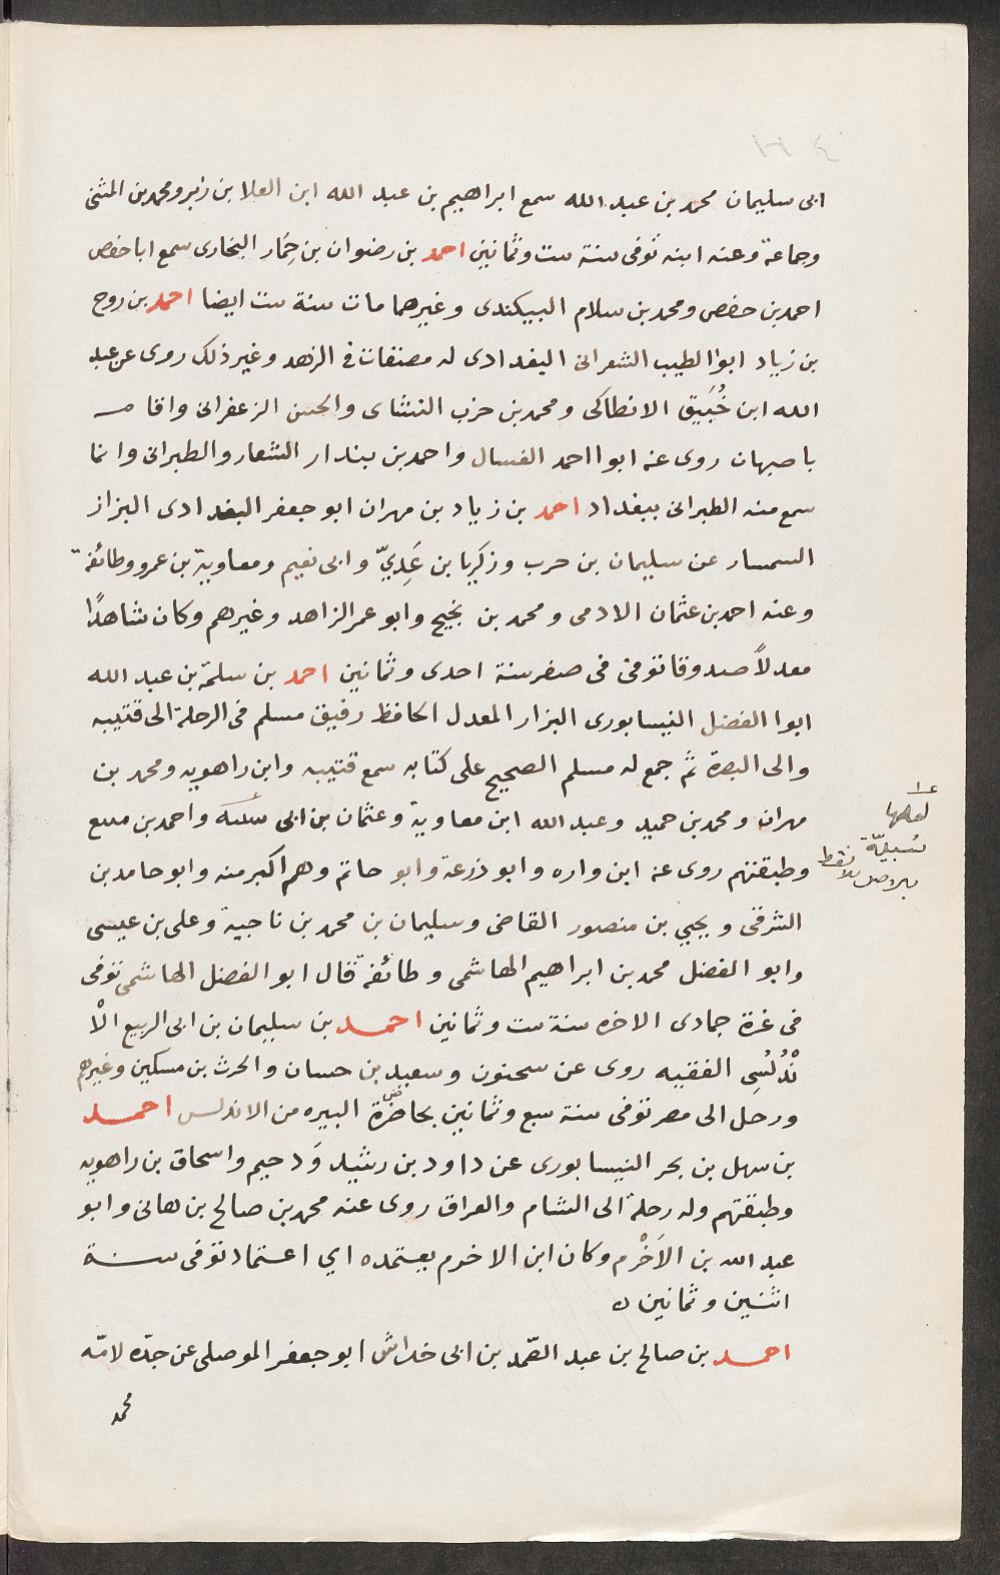 ابى سليمان محمد بن عبد الله سمع ابراهيم بن عبد الله ابن العلا بن زبر ومحمد بن المثنى
وجماعة وعنه ابنه توفى سنة ست وثمانين احمد بن رضوان بن حِمَار البخارى سمع ابا حفص
احمد بن حفص ومحمد بن سلام البيكندى وغيرهما مات سنة ست ايضا احمد بن روح
بن زياد ابوا لطيب الشعرانى البغدادى له مصنفات فى الزهد وغير ذلك روى عن عبد
الله ابن خُبَيق الانطاكى ومحمد بن حرب النشاى والحسن الزعفرانى واقام
باصبهان روى عنه ابوا احمد العسال واحمد بن بندار الشعار والطبرانى وانما
سمع منه الطبرانى ببغداد احمد بن زياد بن مهران ابو جعفر البغدادى البزاز
السمسار عن سليمان بن حرب وزكريا بن عَدِيّ وابى نعيم ومعاوية بن عمرو وطائفة
وعنه احمد بن عثمان الادمى ومحمد بن نجيح وابو عمر الزاهد وغيرهم وكان شاهدًا
معدلاً صدوقا توفى فى صفر سنة احدى وثمانين احمد بن سلمة بن عبد الله
ابوا الفضل النيسابورى البزار المعدل الحافظ رفيق مسلم فى الرحلة الى قتيبه
والى البصرة ثم جمع له مسلم الصحيح على كتابه سمع قتيبه وابن راهويه ومحمد بن
مهران ومحمد بن حميد وعبد الله ابن معاوية وعثمان بن ابى شيبة واحمد بن منيع
وطبقتهم روى عنه ابن واره وابو ذرعة وابو حاتم وهم اكبر منه وابو حامد بن
الشرقى ويحيى بن منصور القاضى وسليمان بن محمد بن ناجية وعلى بن عيسى
وابو الفضل محمد بن ابراهيم الهاشمى وطائفة قال ابو الفضل الهاشمى توفى
فى غرة جمادى الاخره سنة ست وثمانين احمد بن سليمان بن ابى الربيع الْأ
نْدُلُسِى الفقيه روى عن سحنون وسعيد بن حسان والحرث بن مسكين وغيرهم
ورحل الى مصر توفى سنة سبع وثمانين بحاضرة البيره من الاندلس احمد
بن سهل بن بحر النيسابورى عن داود بن رشيد وَدحيم واسحاق بن راهويه
وطبقتهم وله رحلة الى الشام والعراق روى عنه محمد بن صالح بن هانى وابو
عبد الله بن الاَخْرم وكان ابن الاخرم يعتمده اي اعتماد توفى سنة
اثنين وثمانين ه
احمد بن صالح بن عبد الصّمد بن ابى خداش ابو جعفر الموصلى عن جدّه لامّه
محمد
لعلها